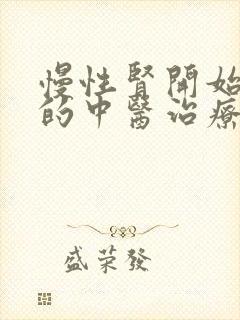 慢性腎開始
的中醫治療
盛荣發